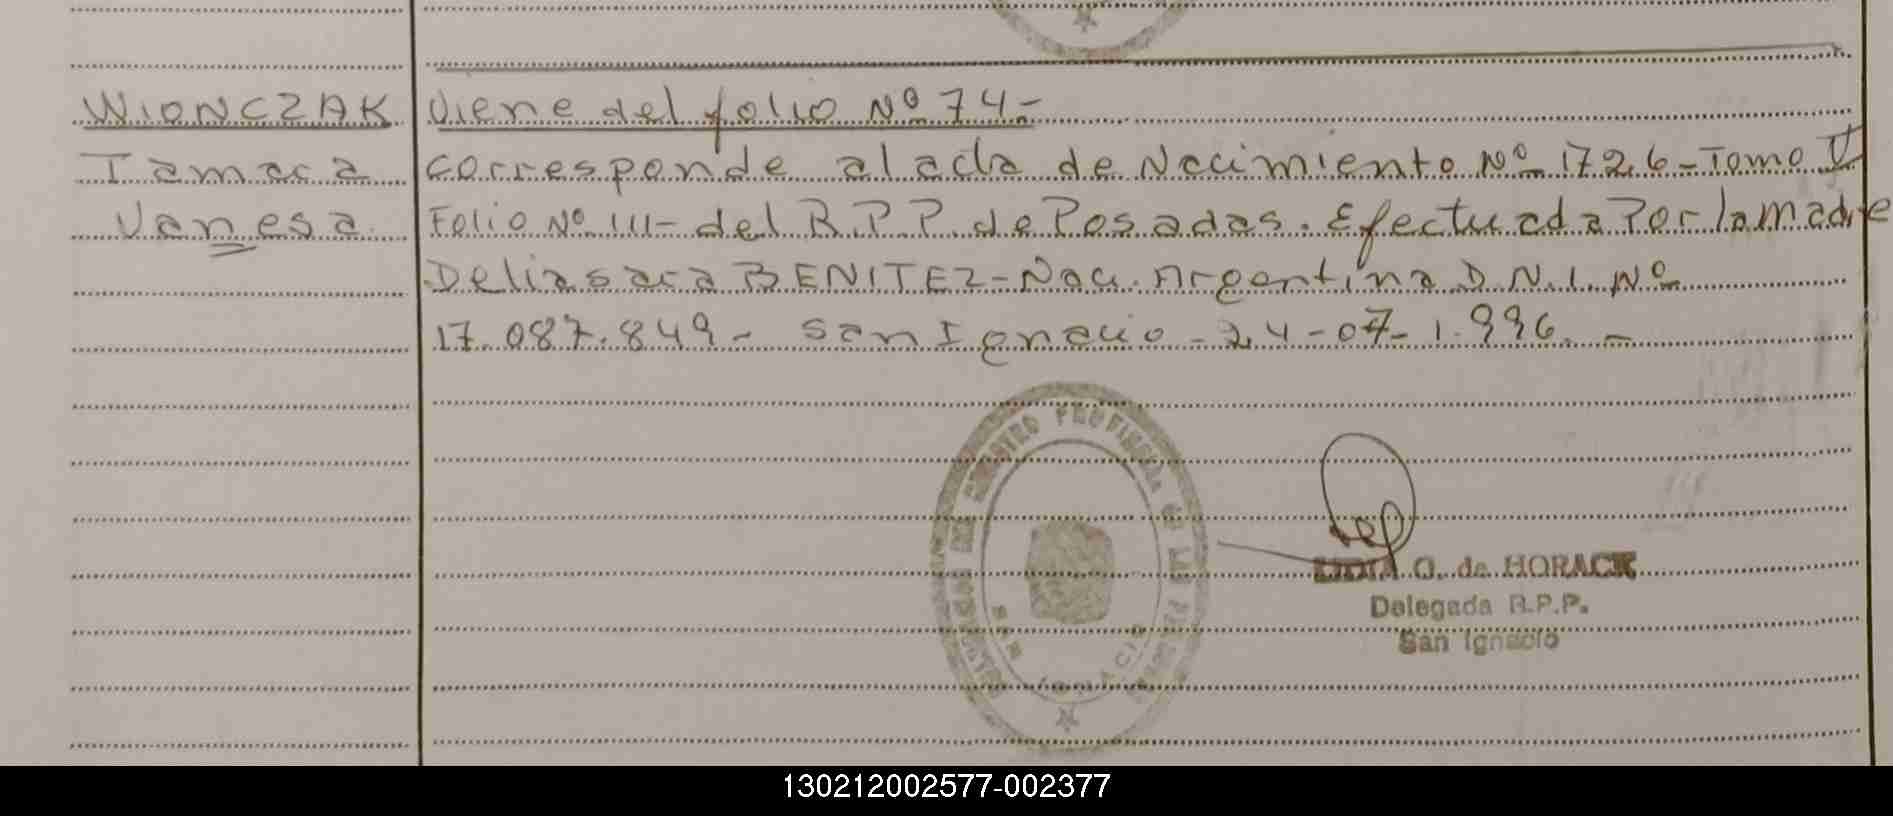 WIONCZAK
Tamara
Vanesa
Viene del folio Nº 74-
corresponde al acta de Nacimiento Nº 1726-Tomo V
Folio Nº 111- del R.P.P. de Posadas. Efectuada Por la madre
Delia sara BENITEZ-Nac. Argentina D.N.I. Nº
17.087.849- San Ignacio-24-07-1.996.-
REGISTRO PROVINCIAL de LAS PERSONAS
SAN IGNACIO
G. de HORACK
Delegada R.P.P.
San Ignacio
130212002577-002377